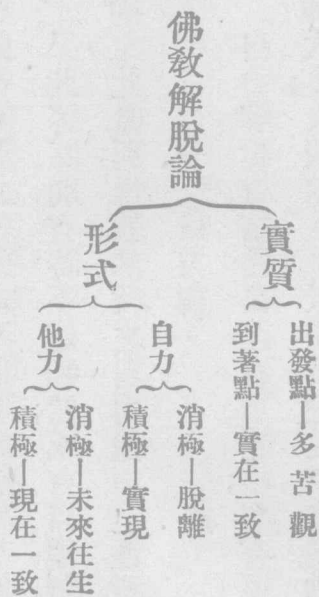 佛敎解脫論
實質
出發點—多苦觀
到著點—實在一致
形式
自力
消極—脫離
積極—實現
他力
消極—未來往生
積極—現在一致